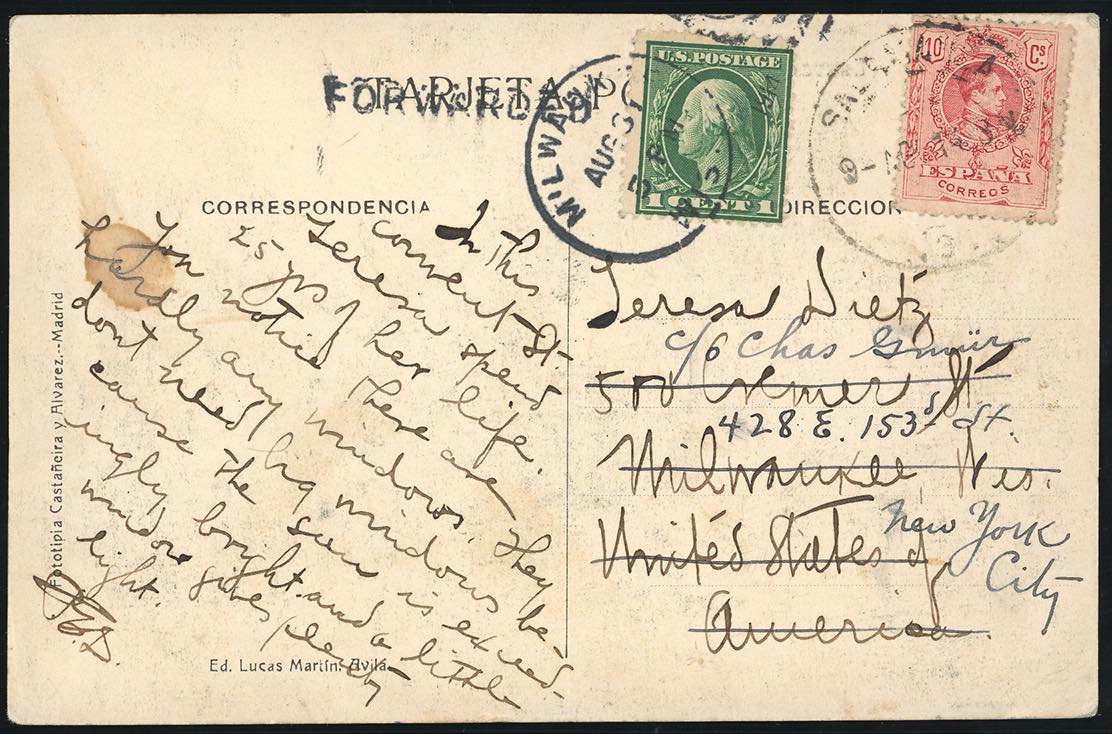 TARJETA PO
FORWARDED
U.S. POSTAGE
1 CENT 1
MILWAU
AUG 3
PM
10 Cs.
ESPAÑA
CORREOS
CORRESPONDENCIA
In this
convent St.
Teresa spend
25 yrs of her life.
You notice there are
hardly any windows. They
dont need big windows be-
cause the sun is exceed-
ingly bright and a little
window gives plenty
light.
DIRECCION
Teresa Dietz
c/o Chas
500 St
428 E. 153 St.
Milwaukee, Wis.
New York
United States of
City
America.
Fototipia Castañeira y Alvarez.--Madrid
Ed. Lucas Martín. Avila